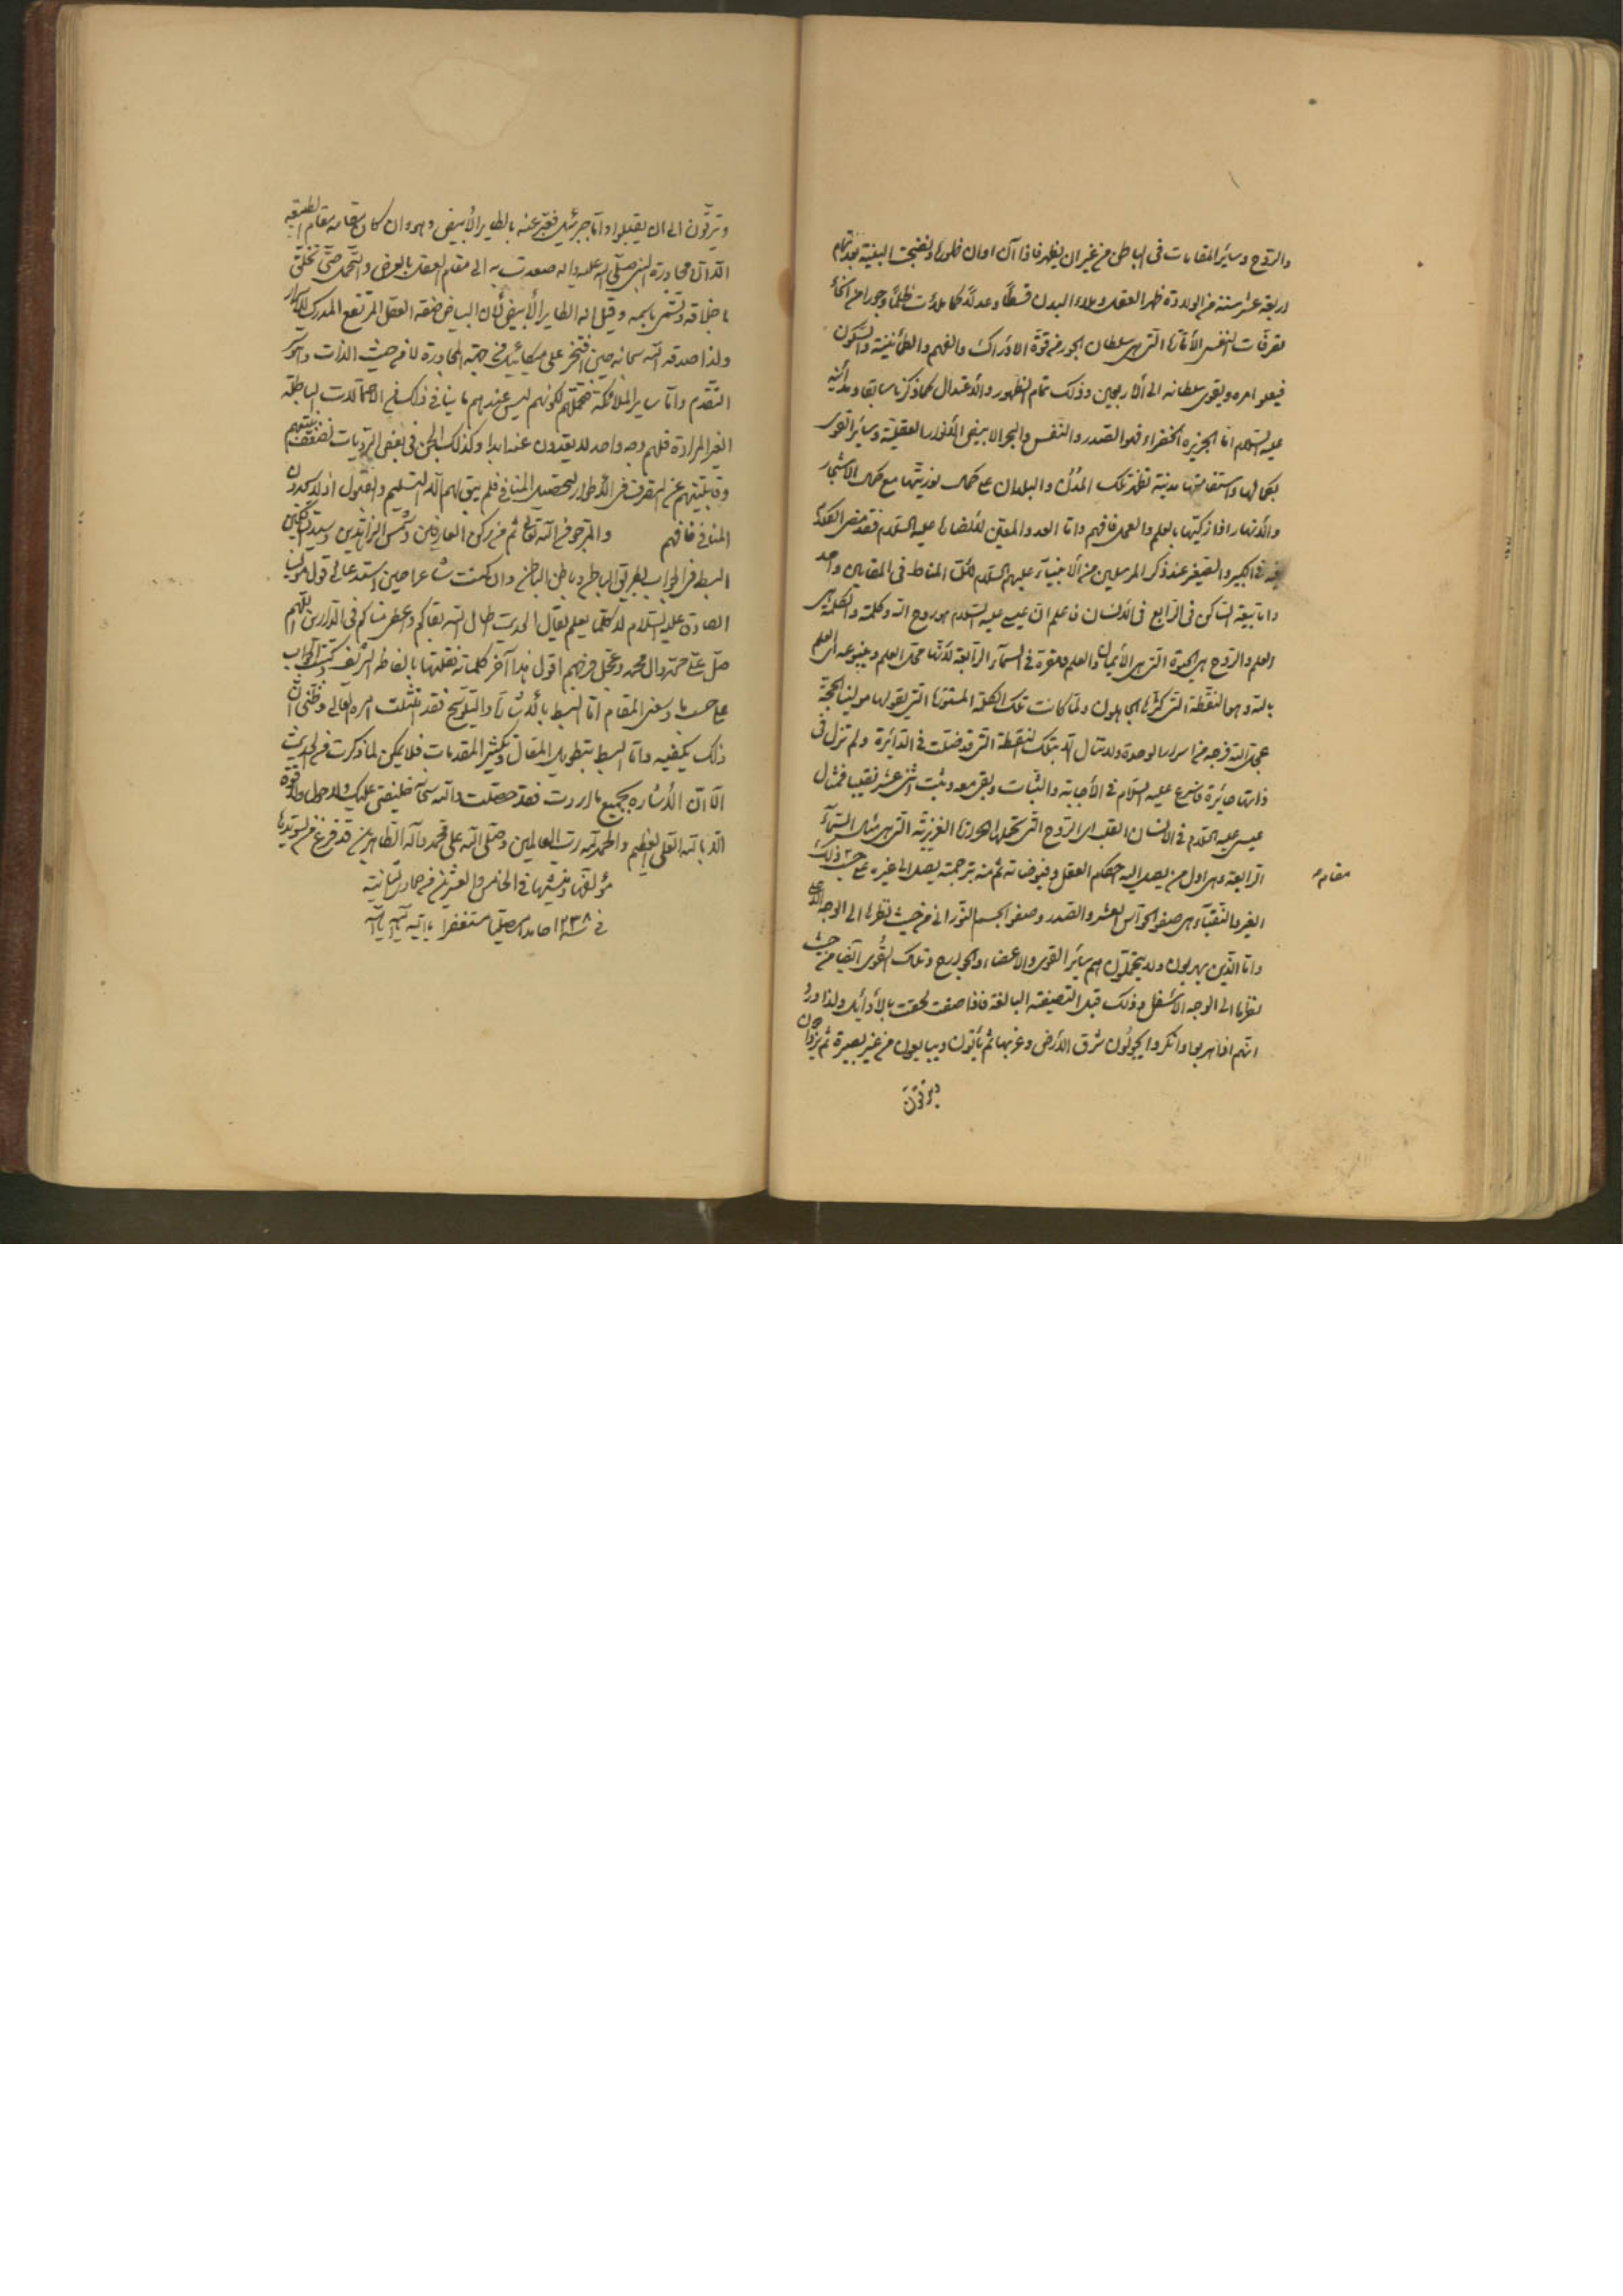 والروح وسائر المقامات فى الباطن من غير ان يظهر فاذا آن اوان ظهوره ونضجت البنية بعد تمام
اربعة عشر سنة من الولادة ظهر العقل وملاء البدن قسطًا وعدلًا كما ملأت ظلمًا وجورا من انحاء
تصرفات النفس الأمّارة التى هى سلطان الجور من قوة الادراك والفهم والطمأنينة والسكون
فيعلو امره ويقوى سلطانه الى الاربعين وذلك تمام الظهور والاعتدال كما ذكرنا سابقا
عليه السلام اما الجزيره الخضراء فهو الصدر والنفس والبحر الابيض الأنوار العقلية وسائر القوى
بكمالها واستقامتها مدنية تظهر تلك المدن والبلدان على كمال نورينها مع كمال الاشجار
والأنهار اذا زكيتها بالعلم والعمل فافهم واما العدد المعين لأنصاره عليه السلام فقد مضى الكلام
فيه فى الكبير والصغير عند ذكر المرسلين من الأنبياء عليهم السلام لأن المناط فى المقامين واحد
واما بيعة الساكن فى الرابع فى الانسان فاعلم ان عيسى عليه السلام هو روح الله وكلمته والكلمة هى
العلم والروح هى الحيوة التى هى الأيمان والعلم ومقره فى السمآء الرابعة لأنها محل العلم وينبوعه اى العلم
بالله وهو النقطة التى كثرها الجاهلون ولما كانت تلك الكلمة المستورة التى يقولها مولينا الحجة
عجل الله فرجه من اسرار الوحدة ولا تنال الا بتلك النقطة التى قد ضلت فى الدائرة ولم تزل فى
ذاتها حائرة فاسرع عليه السلام فى الأجابة والثبات وبقى معه وثبت اثنى عشر نقيبا فمثال
عيسى عليه السلام فى الانسان القلب اى الروح التى تحملها الحرارة الغريزية التى هى مثل السمآء
الرابعة وهى اول من يصل اليه احكام العقل وفيوضاته ثم منه بترجمته يصل الى غيره على حسب ذلك
مقام
الغير والنقباء هى صفو الحواس العشر والصدر وصفو الجسم النورانى من حيث نظرها الى الوجه الأعلى
واما الذين يهربون ولا يتحملون هم سائر القوى والاعضاء والجوارح وتلك القوى ايضا من حيث
نظرها الى الوجه الاسفل وذلك قبل التصفية البالغة فاذا صفت لحقت بالأوائل ولذا ورد
انهم اذا هربوا وانكروا يجولون شرق الأرض وغربها ثم يأتون ويبايعون من غير بصيرة ثم يزدادون
ويترقون
ويترقّون الى ان يقبلوا واما جبرئيل فعبّر عنه بالطير الأبيض وهو وان كان مقامه مقام الطبيعة
الا ان مجاورة النبى صلى الله عليه واله صعدت به الى مقام العقل بالعرض والتحمل حتى تخلق
باخلاقه وتسمى باسمه وقيل له الطاير الأبيض لأن البياض صفة العقل المرتفع المدرك للأسرار
ولذا صدقه الله سبحانه حين افتخر على ميكائيل من جهة المجاورة لا من حيث الذات
التقدم واما ساير الملائكة فتحملهم لكونهم ليس عندهم ما ينافى ذلك من الاحتمالات الباطلة
الغير المرادة فلهم وجه واحد لا يعدون عنه ابدا وكذلك الجن فى بعض الروايات لضعف بنيتهم
وقابليتهم عن التصرف فى الأطوار لتحصيل المنافى فلم يبق لهم الا التسليم والقبول اذ لا يجدون
المنافى فافهم والمرجو من الله تعالى ثم من ركن العارفين وشمس الزاهدين وسيد
البسط فى الجواب بطريق الباطن وباطن الباطن وان كنت شاعرا حين استدعائى قول مولينا
الصادق عليه السلام لا كلما يعلم يقال الحديث طال الله بقاكم وعطر فاكم فى الدارين اللهم
صل على محمد وال محمد وعجل فرجهم اقول هذا آخر كلماته نقلتها بالفاظه الشريف وكتبت الجواب
على حسب ما وسعنى المقام اما البسط بالاشارة والتلويح فقد امتثلت امره العالى وظنى ان
ذلك يكفيه واما البسط بتطويل المقال وتكثير المقدمات فلا يمكن لما ذكرت من الحديث
الا ان الأشاره بجميع ما اردت فقد حصلت والله سبحانه خليفتى عليك ولا حول ولا قوة
الا بالله العلى العظيم والحمد لله رب العالمين وصلى الله على محمد وآله الطاهرين قد فرغ من تسويدها
مؤلفها ومنشيها فى الخامس والعشرين من جمادى الثانية
فى سنة ١٢٣٨ حامدا مصليا مستغفرا